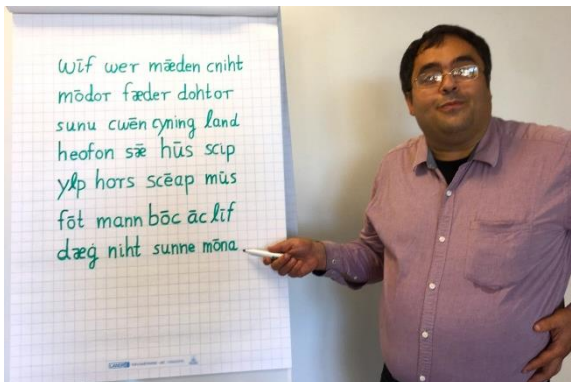 wīf wer mǣden cniht
mōdor fæder dohtor
sunu cwēn cyning land
heofon sǣ hūs scip
ylp hors scēap mūs
fōt mann bōc āc līf
dæġ niht sunne mōna.